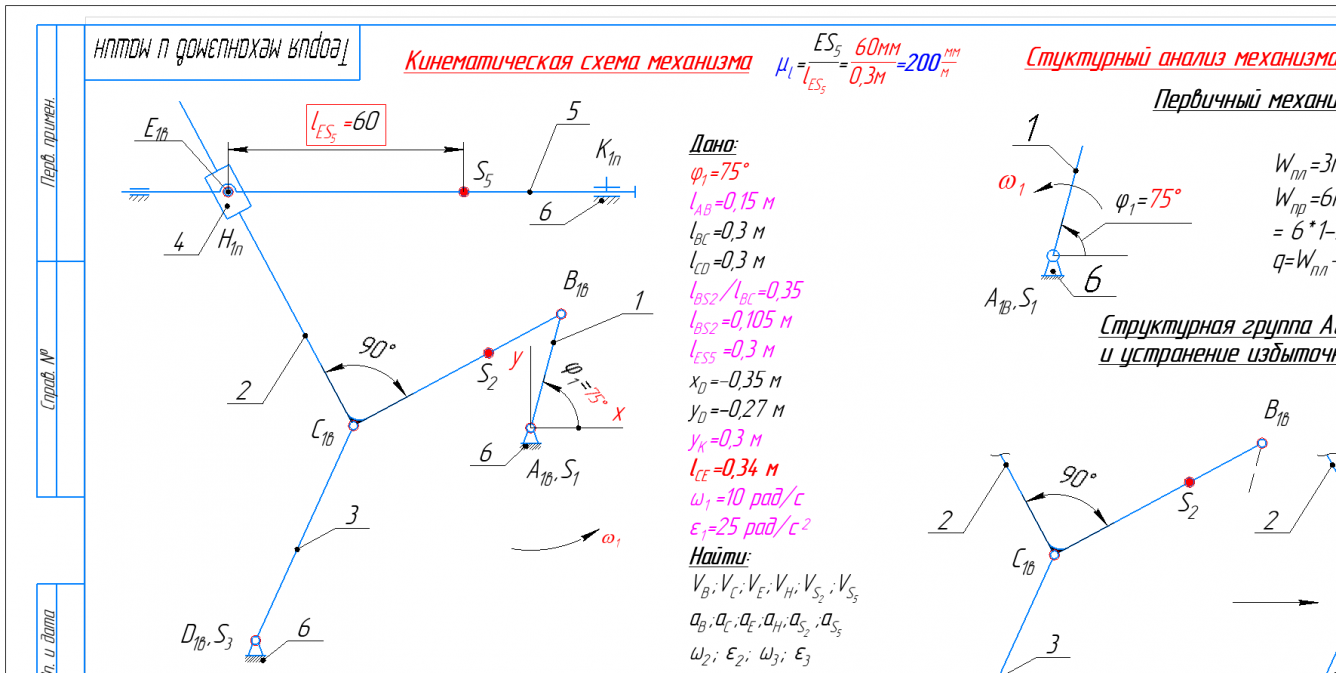 Теория механизмов и машин
Кинематическая схема механизма
μ_l = ES₅/l_ES₅ = 60мм/0,3м = 200 мм/м
Стуктурный анализ механизма
Первичный механи
Перв. примен.
Справ. №
п. и дата
E₁в
l_ES₅ =60
S₅
5
K₁п
6
4
H₁п
B₁в
1
90°
S₂
y
φ₁=75°
x
2
C₁в
6
A₁в, S₁
3
ω₁
D₁в, S₃
6
Дано:
φ₁=75°
l_AB=0,15 м
l_BC=0,3 м
l_CD=0,3 м
l_BS2/l_BC=0,35
l_BS2=0,105 м
l_ES5=0,3 м
x_D=-0,35 м
y_D=-0,27 м
y_K=0,3 м
l_CE=0,34 м
ω₁=10 рад/с
ε₁=25 рад/с²
Найти:
V_B; V_C; V_E; V_H; V_S₂; V_S₅
a_B; a_C; a_E; a_H; a_S₂; a_S₅
ω₂; ε₂; ω₃; ε₃
1
ω₁
φ₁=75°
6
A₁В, S₁
W_пл=3
W_пр=6
= 6*1-
q=W_пл-
Структурная группа А
и устранение избыточн
B₁в
90°
S₂
2
C₁в
3
2